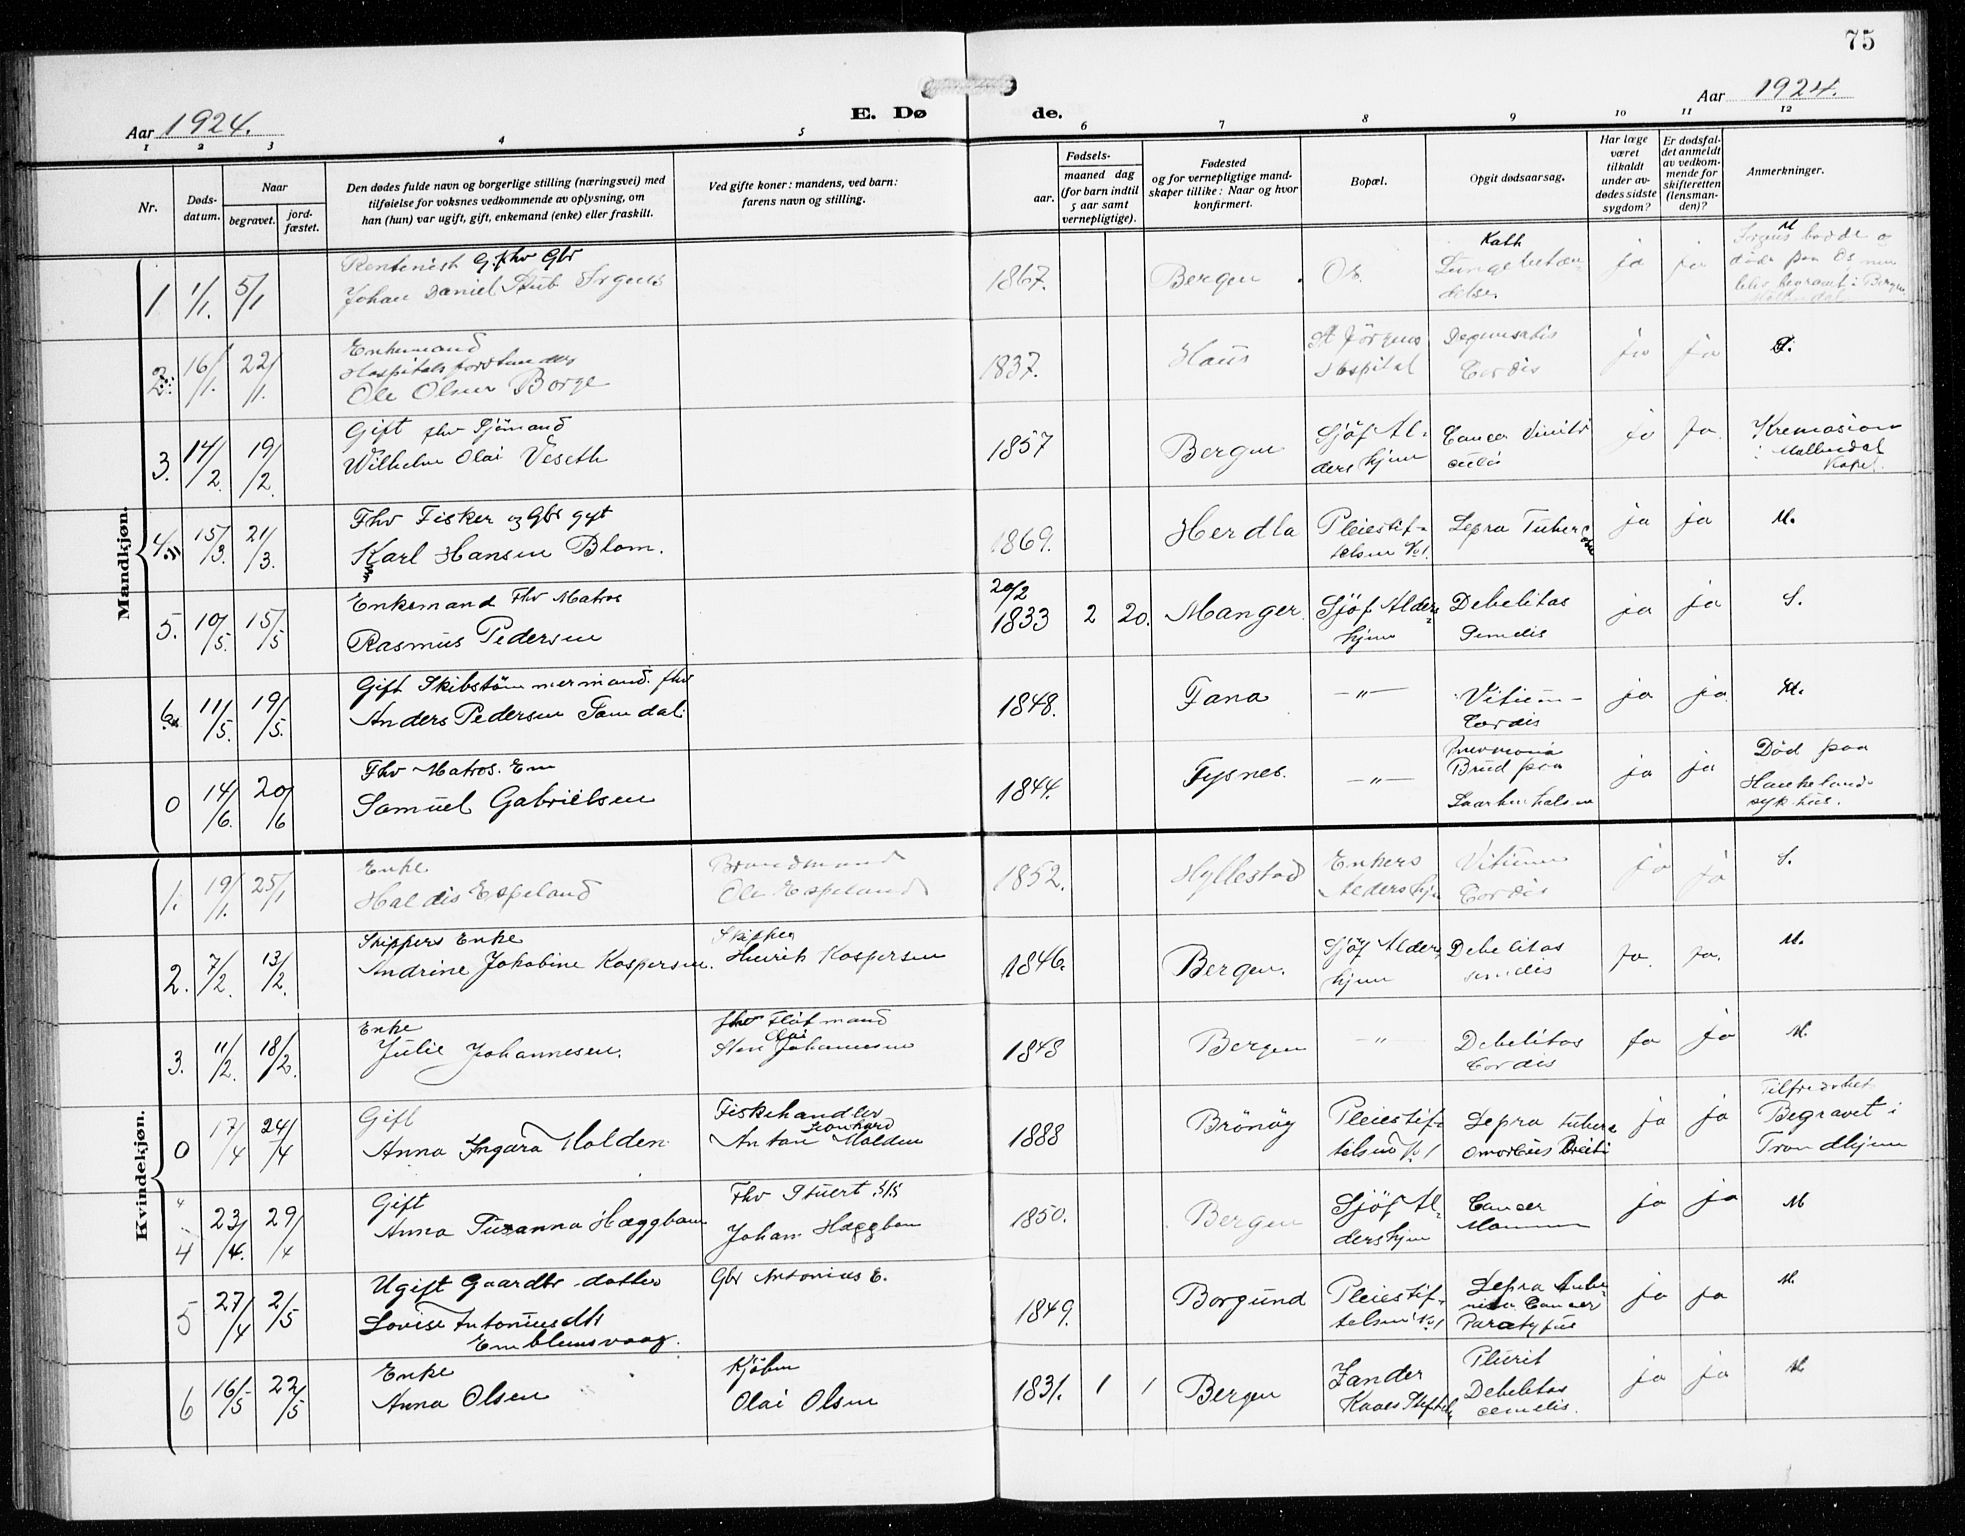 75
Aar 1924.
E. Dø de.
Aar 1924.
1 2 3 4 5 6 7 8 9 10 11 12
Nr.
Døds-
datum.
Naar
begravet.
jord-
fæstet.
Den dødes fulde navn og borgerlige stilling (næringsvei) med
tilføielse for voksnes vedkommende av oplysning, om
han (hun) var ugift, gift, enkemand (enke) eller fraskilt.
Ved gifte koner: mandens, ved barn:
farens navn og stilling.
aar.
Fødsels-
maaned dag
(for barn indtil
5 aar samt
vernepligtige).
Fødested
og for vernepligtige mand-
skaper tillike: Naar og hvor
konfirmert.
Bopæl.
Opgit dødsaarsag.
Har læge
været
tilkaldt
under av-
dødes sidste
sygdom?
Er dødsfal-
det anmeldt
av vedkom-
mende for
skifteretten
(lensman-
den)?
Anmerkninger.
Mandkjøn.
1 1/1. 5/1 Johan Daniel Stub 1867. Bergen Os. ja ja
2. 16/1. 22/1. Enkemand
Hospitalsforstander
Ole Olsen Borge 1837. Haus St Jörgens
Hospital Cordis ja ja
3. 14/2. 19/2. Gift fhv Sjömand
Wilhelm Olai Veseth 1857 Bergen Sjöf Al-
ders hjem Cancer ja ja Kremasion
i Møllendal
Kapel.
4. 15/3. 21/3. Fhv Fisker og Gbr gift
Karl Hansen Blom. 1869. Herdla Pleiestif-
telsen No 1. Lepra Tuberosa ja ja M.
5. 10/5. 15/5 Enkemand Fhv Matros
Rasmus Pedersen 20/2 1833 2 20. Manger. Sjöf Alders-
hjem Debelitas
Senelis ja ja S.
6. 11/5. 19/5. Gift Skibstömmermand. fhv
Anders Pedersen 1848. Fana —"— Vitium
Cordis ja ja M.
0 14/6. 20/6 Fhv Matros. Em
Samuel Gabrielsen 1844. Tysnes. —"— Pneumonia
Brud paa
Laarbenhalsen ja ja Död paa
Haukeland
sykhus.
Kvindekjøn.
1. 19/1. 25/1 Enke
Haldis Espeland Brandmand
Ole Espeland 1852. Hyllestad Enkers
Aldershjem Vitium
Cordis ja ja S.
2. 7/2. 13/2. Skippers Enke
Andrine Jakobine Kaspersen. Skipper
Hinrik Kaspersen 1846. Bergen. Sjöf Alders
hjem Debelitas
senelis ja. ja. M.
3. 11/2. 18/2. Enke
Julie Johannesen. fhv Flötmand
Olai
Johannesen 1848 Bergen —"— Debelitas
Cordis ja ja M.
0 17/4 24/4 Gift
Anna Ingara Molden Fiskehandler
Leonhard
Anton Molden 1888 Brönöy Pleiestif-
telsen No 1 Lepra tubero
ja ja
Begravet i
Trondhjem
4 23/4. 29/4 Gift
Anna Susanna Hæggbom Fhv Stuert
Johan Hæggbom 1850. Bergen Sjöf Al-
ders hjem Cancer
Mamma ja ja M
5 27/4 2/5 Ugift Gaardbr. datter
Lovise Antoniusdtr
Emblemsvaag. Gbr Antonius E. 1849. Borgund Pleiestif-
telsen No 1 Lepra
Cancer
ja ja M.
6 16/5 22/5 Enke
Anna Olsen Kjöbm
Olai Olsen 1831. 1 1 Bergen Zander
Kaaes Stiftelse Plurit
Debelitas
senelis. ja ja M.